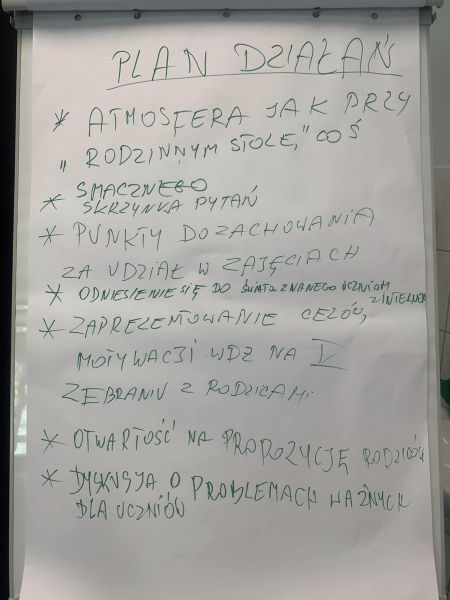 PLAN DZIAŁAŃ
* ATMOSFERA JAK PRZY
„RODZINNYM STOLE," COŚ
SMACZNEGO
* SKRZYNKA PYTAŃ
* PUNKTY DO ZACHOWANIA
ZA UDZIAŁ W ZAJĘCIACH
* ODNIESIENIE SIĘ DO ŚWIATA ZNANEGO UCZNIOM
Z INTERNETU
* ZAPREZENTOWANIE CELÓW,
MOTYWACJI WDZ NA I
ZEBRANIU Z RODZICAMI
* OTWARTOŚĆ NA PROPOZYCJĘ RODZICÓW
* DYSKUSJA O PROBLEMACH WAŻNYCH
DLA UCZNIÓW